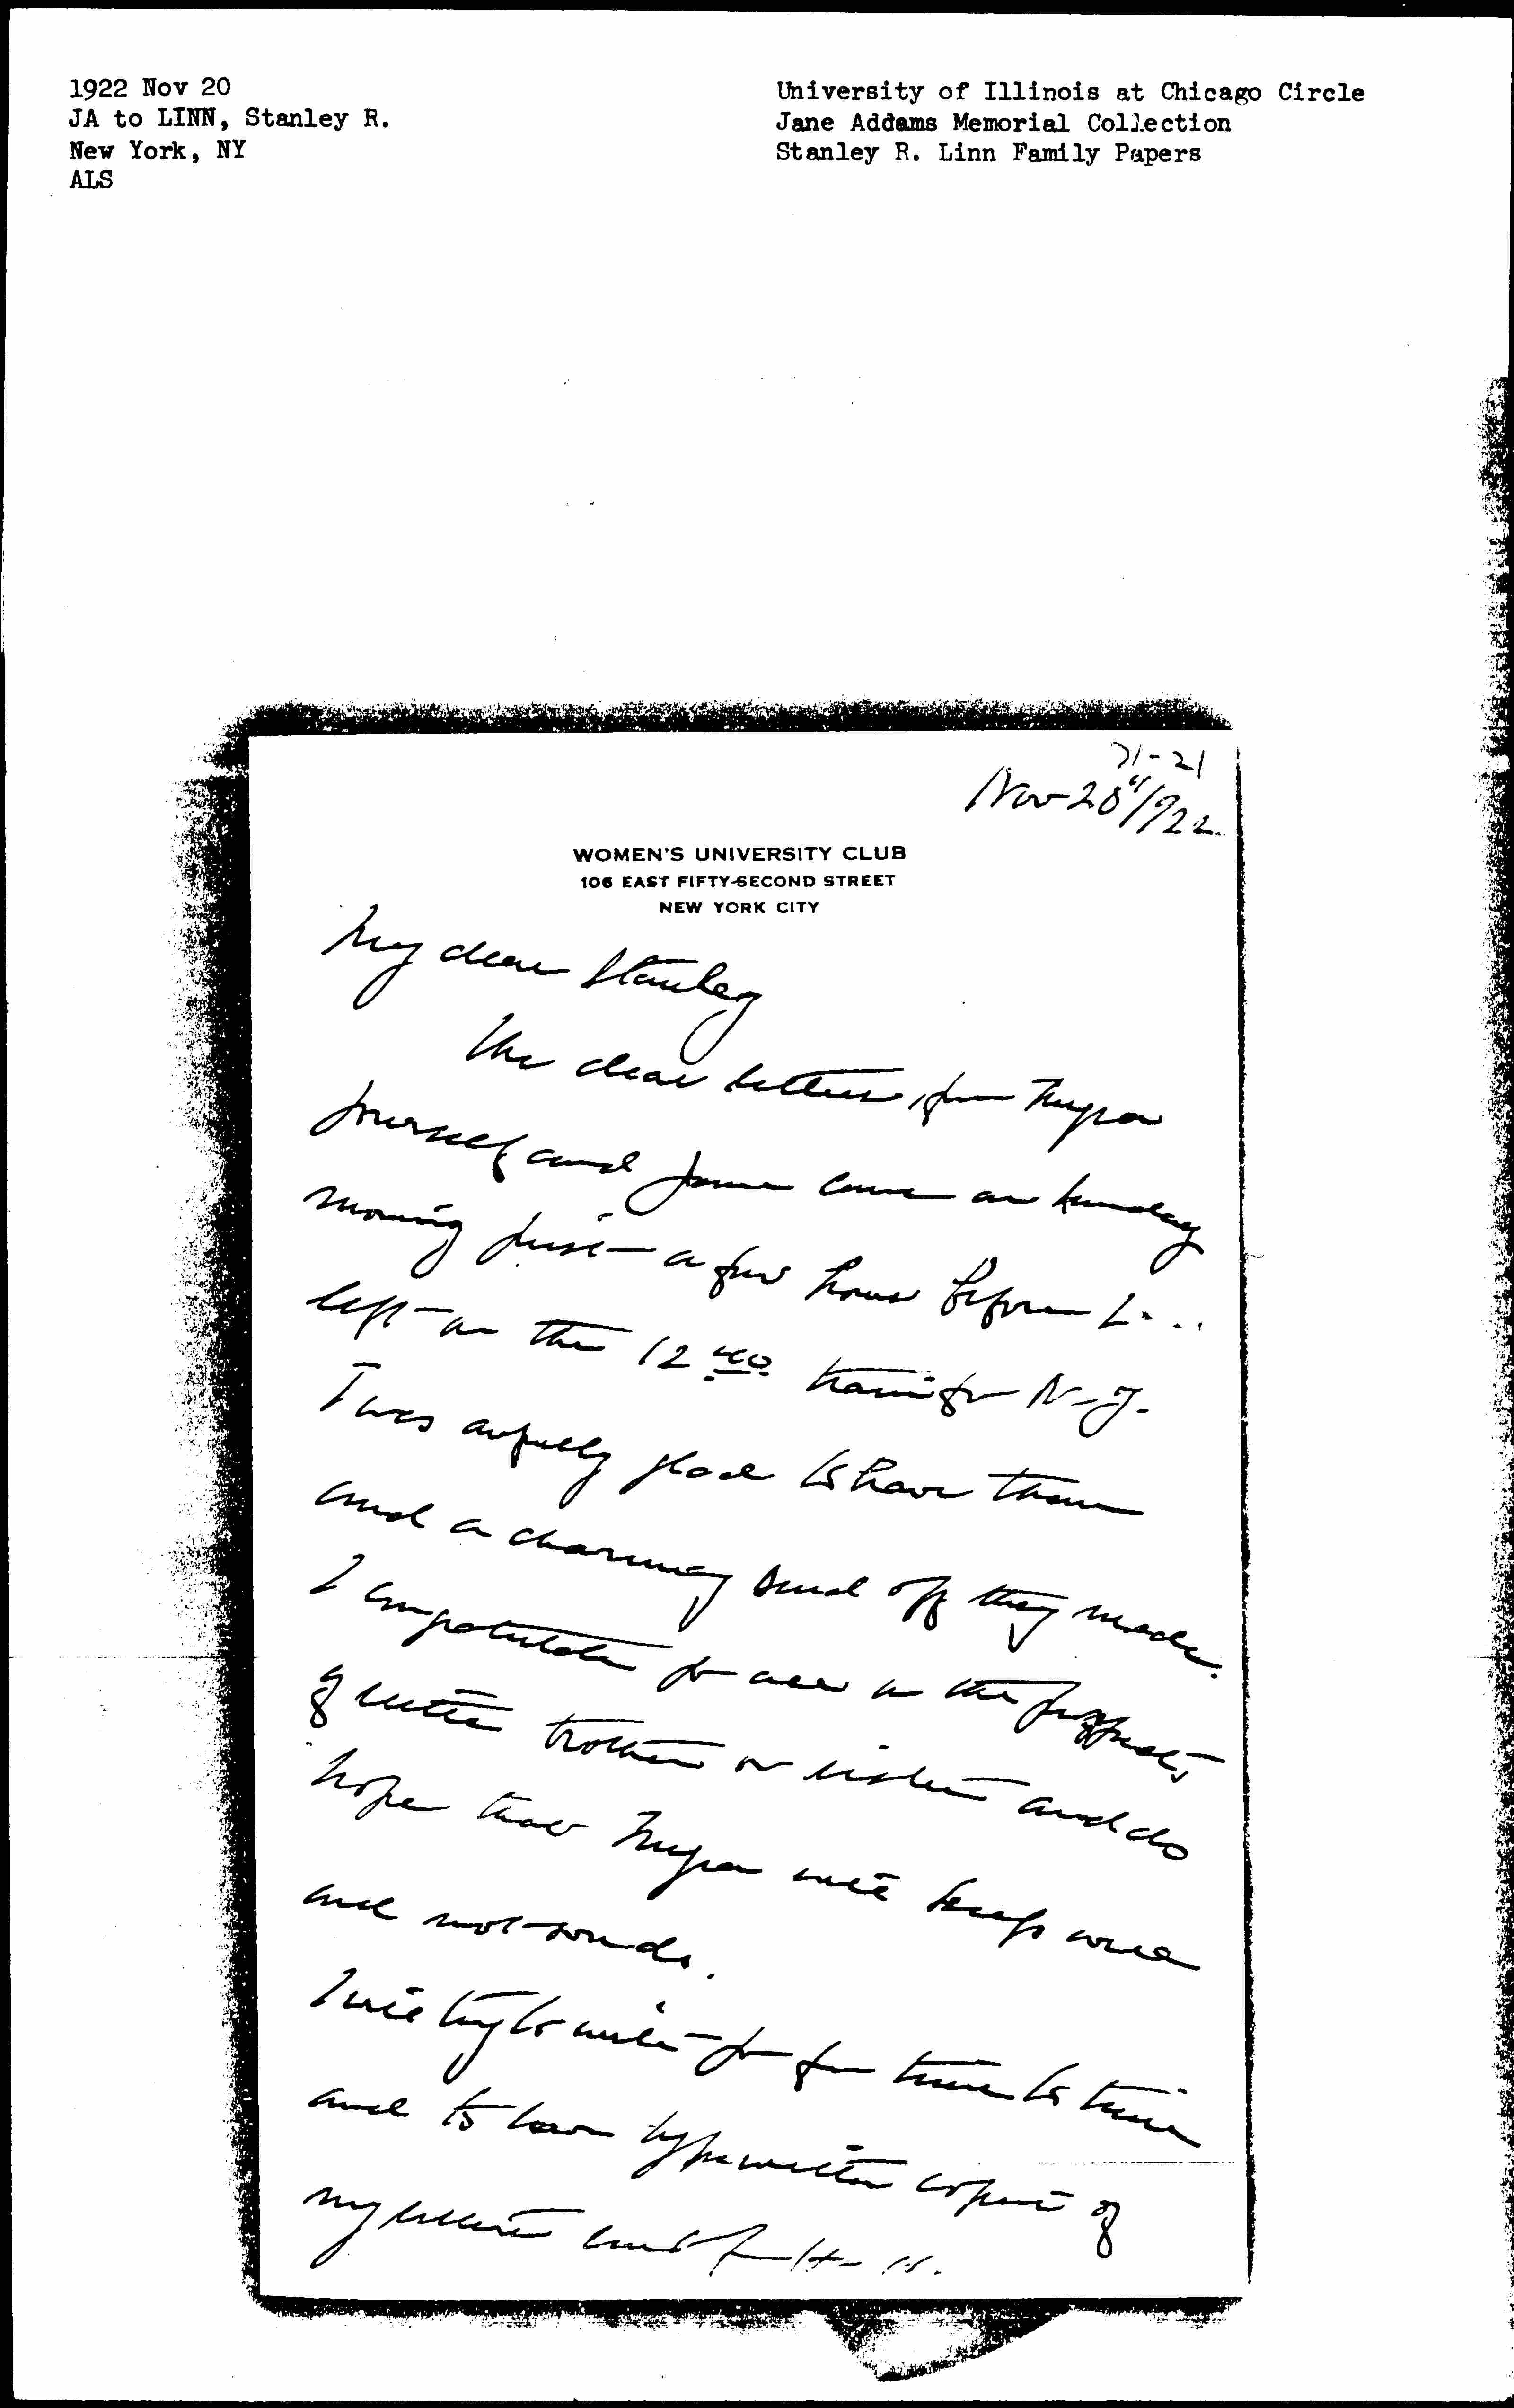 1922 Nov 20
JA to LINN, Stanley R.
New York, NY
ALS
University of Illinois at Chicago Circle
Jane Addams Memorial Collection
Stanley R. Linn Family Papers
71-21
Nov 20" 1922.
WOMEN'S UNIVERSITY CLUB
106 EAST FIFTY-SECOND STREET
NEW YORK CITY
My dear Stanley
The dear letters, from Myra
yourself and Jane came on Sunday
morning just a few hours before I
left on the 12 40 train for N.Y.
I was awfully glad to have them
and a charming send off they made.
I congratulate you all on the prospects
of little brother or sister and do
hope that Myra will keep well
and not
I will try to write you from time to time
and to have typewritten copies of
my letters sent from H- H.